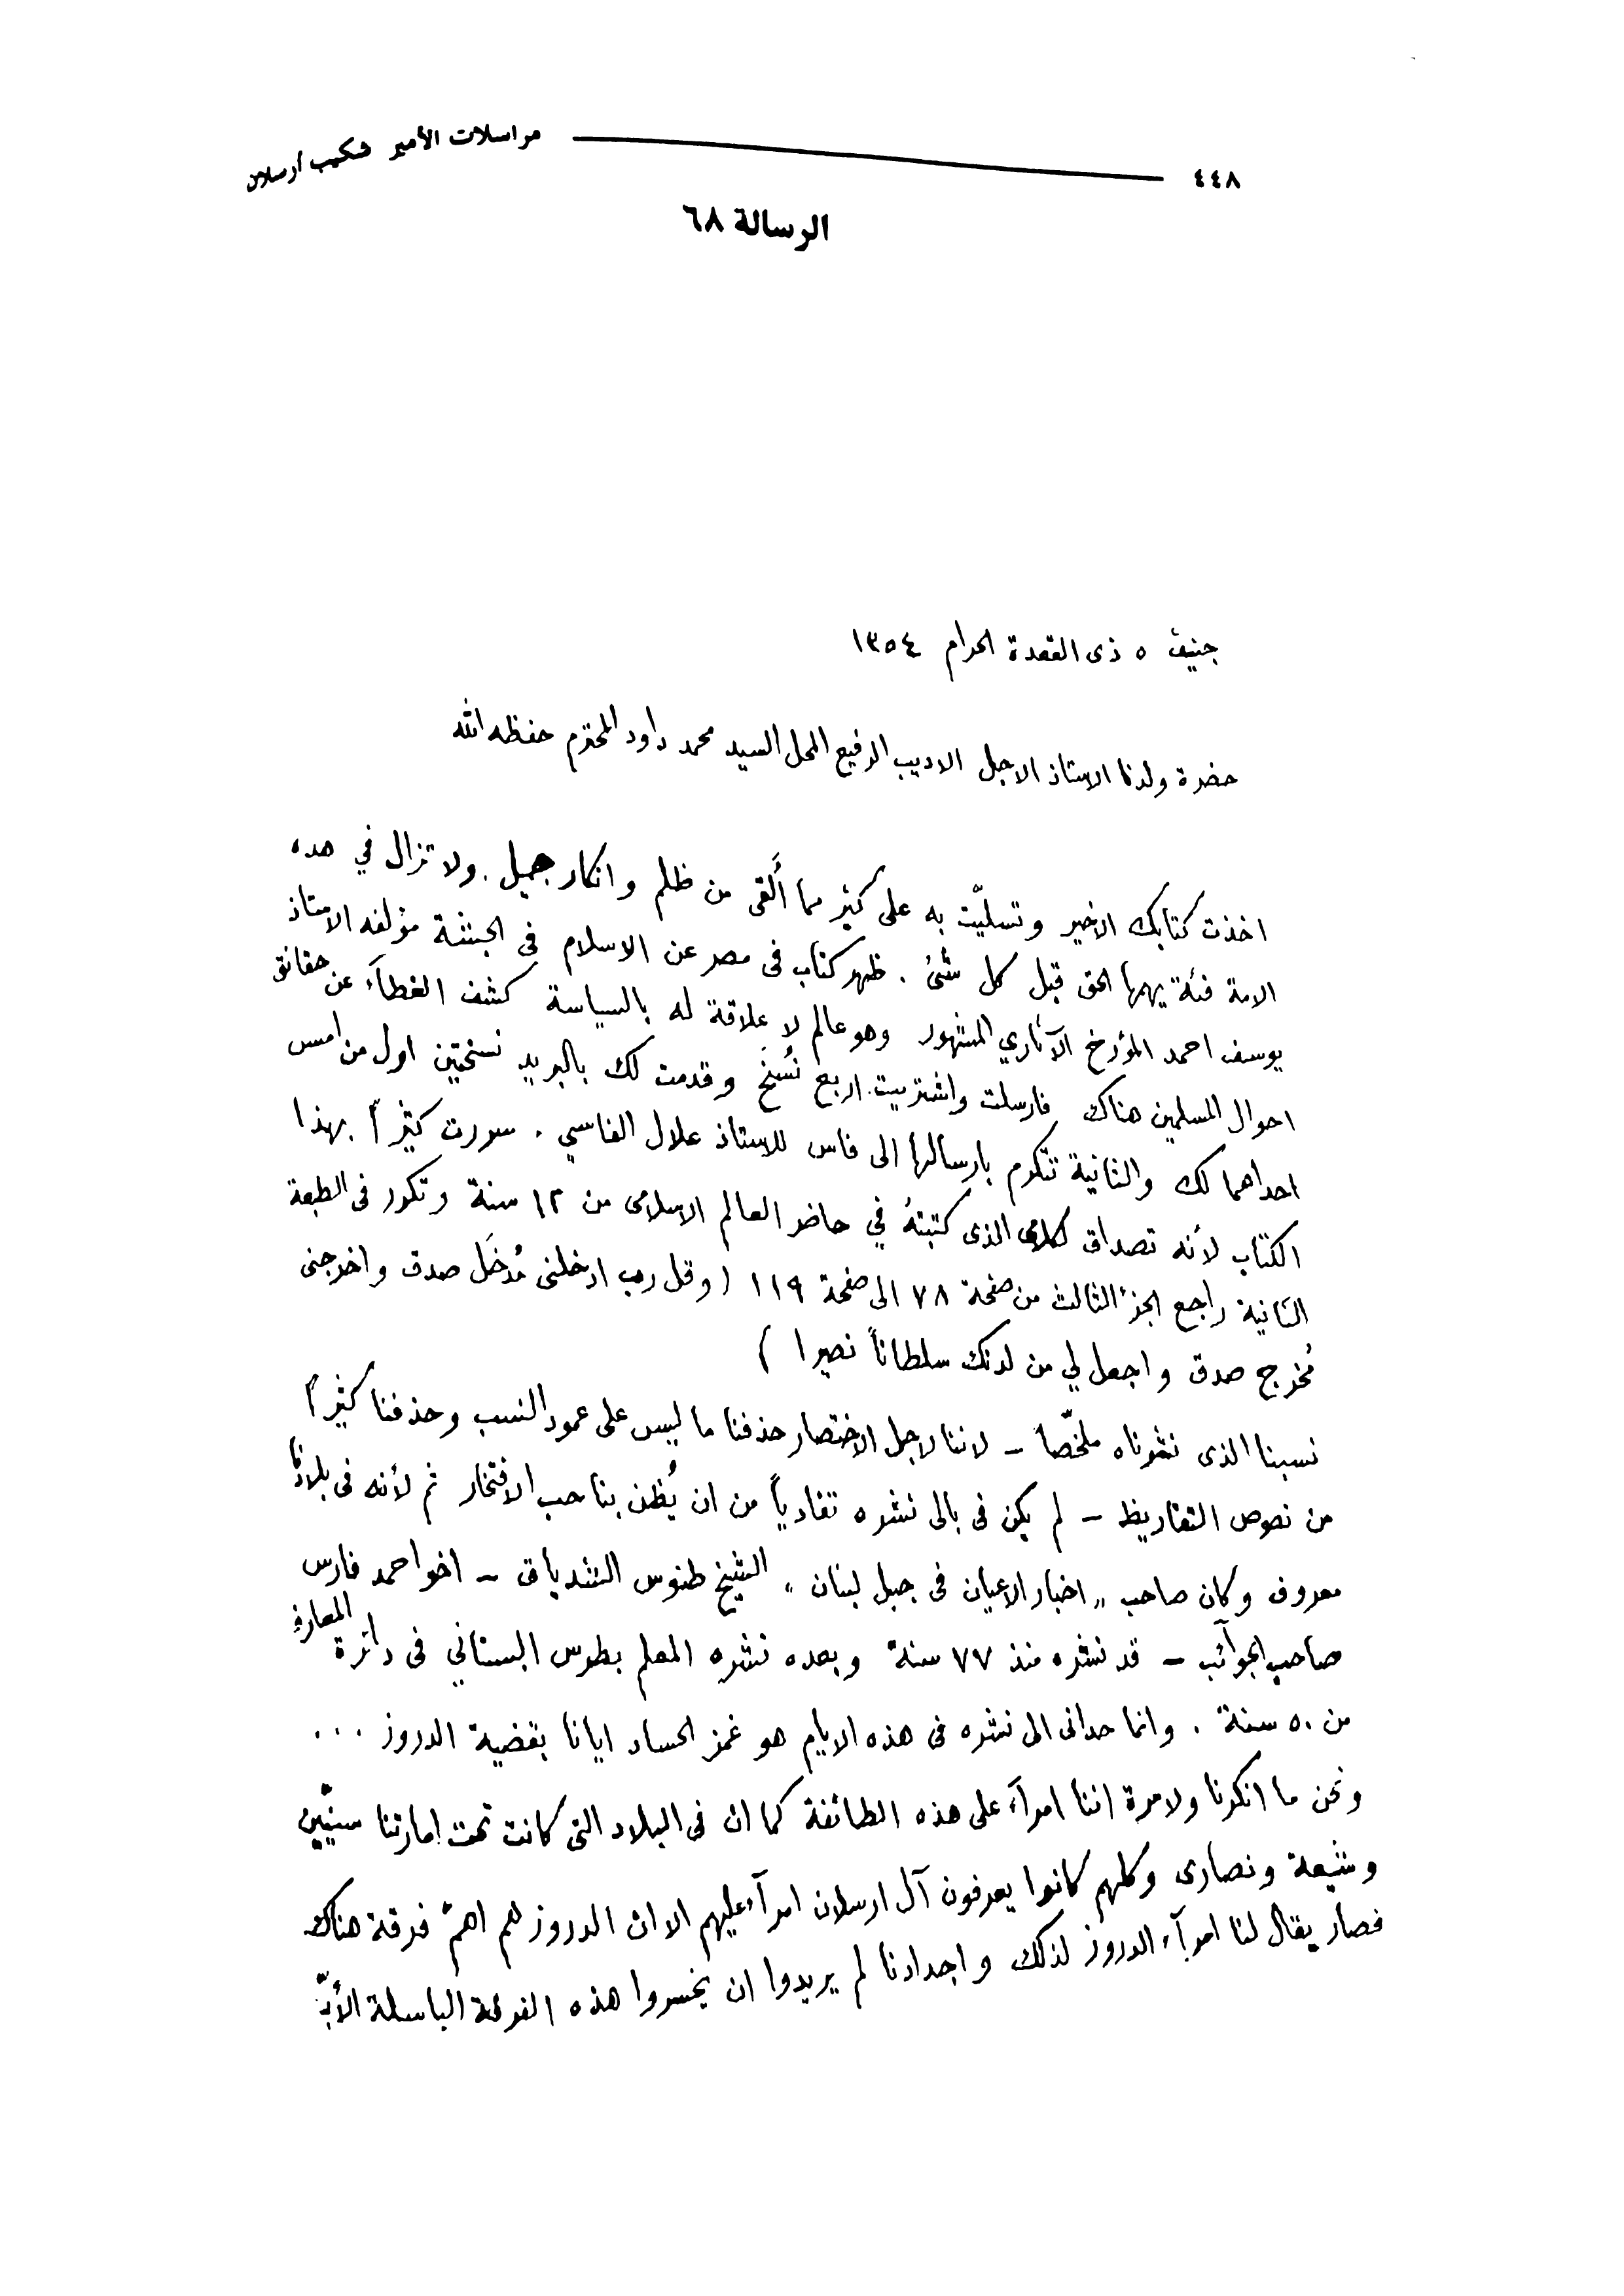 ٤٤٨ مراسلات الأمير شكيب أرسلان
الرسالة ٦٨
جنيف ٥ ذى القعدة الحرام ١٣٥٤
حضرة ولدنا الاستاذ الاجل الاديب الرفيع المحل السيد محمد داود المحترم حفظه الله
اخذت كتابك الاخير وتسليّت به على كثير مما أَلقى من ظلم وانكار جميل . ولا تزال في هذه
الامة فئة يهمها الحق قبل كل شئ . ظهر كتاب فى مصر عن الاسلام فى الحبشة مؤلفه الاستاذ
يوسف احمد المؤرخ الآثاري المشهور وهو عالم لا علاقة له بالسياسة كشف الغطآء عن حقائق
احوال المسلمين هناك فارسلت واشتريت اربع نُسَخ وقدمت لك بالبريد نسختين اول من امس
احداهما لك والثانية تتكرم بارسالها الى فاس للاستاذ علال الفاسي . سررت كثيراً بهذا
الكتاب لأنه تصداق كلامى الذى كتبتهُ في حاضر العالم الاسلامى من ١٢ سنة وتكرر فى الطبعة
الثانية راجع الجزء الثالث من صفحة ٧٨ الى صفحة ١١٩ ( وقل رب ادخلنى مُدخَل صدق واخرجنى
مُخرج صدق واجعل لي من لدنك سلطاناً نصيرا )
نسبنا الذى نشرناه ملخّصاً – لاننا لاجل الاختصار حذفنا ما ليس على عمود النسب وحذفنا كثيراً
من نصوص التقاريظ – لم يكن فى بالى نشره تفادياً من ان يُظن بنا حب الافتخار ثم لأنه فى بلادنا
معروف وكان صاحب „ اخبار الاعيان فى جبل لبنان „ الشيخ طنوس الشدياق – اخو احمد فارس
صاحب الجوآئب – قد نشره منذ ٧٧ سنة وبعده نشره المعلم بطرس البستاني فى دائرة المعارف
من ٥٠ سنة . وانما حدانى الى نشره فى هذه الايام هو غمز الحساد ايانا بقضية الدروز . . .
ونحن ما انكرنا ولا مرة اننا امرآء على هذه الطائفة كما ان فى البلاد التى كانت تحت إمارتنا سنيّين
وشيعة ونصارى وكلهم كانوا يعرفون آل ارسلان امرآء عليهم الا ان الدروز هم اهمّ فرقة هناك
فصار يقال لنا امرآء الدروز لذلك واجدادنا لم يريدوا ان يخسروا هذه الفرقة الباسلة الأبيّة